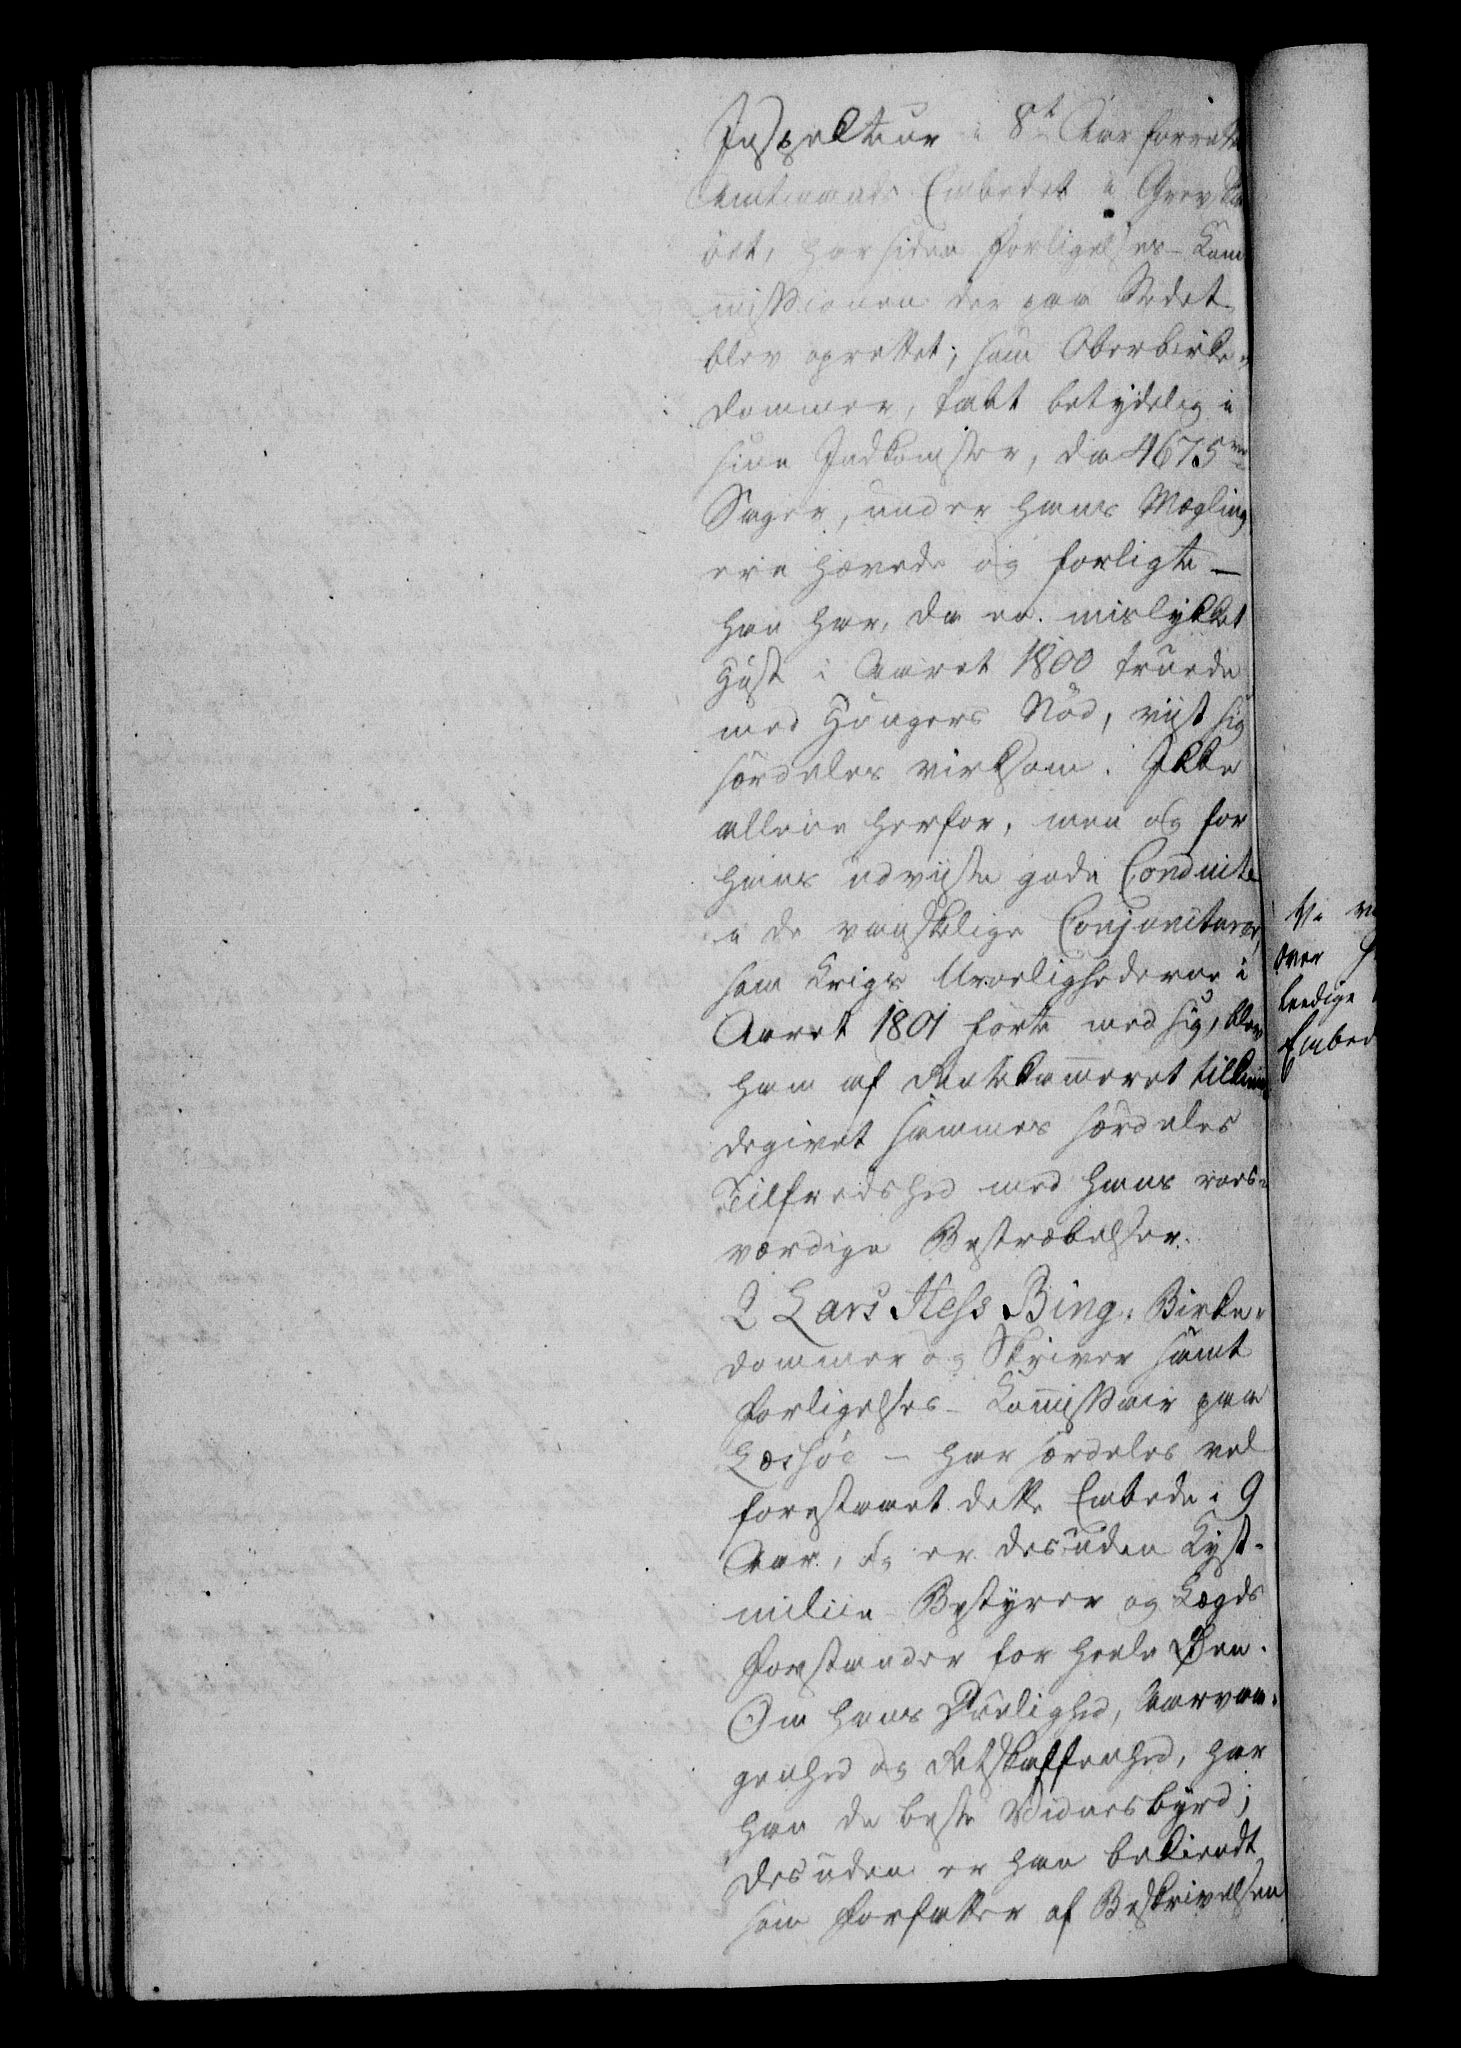 Inspecteur i 8t Aar forrettet
Amtmands Embedet i Grevska
bet, har siden Forligelses-Com
missionen der paa Stedet
blev oprettet; som Oberbirke-
dommer, tabt betydelig i
sine Indkomster, da 4675
Sager, under hans Mægling
ere hævede og forligte —
han har, da en mislykket
Høst i Aaret 1800 truede
med Hungers Nød, viist sig
særdeles virksom. Ikke
allene herfor, men og for
hans udviiste gode Conduite
i de vanskelige Conjoncturer,
som Krigs Uroelighederne i
Aaret 1801 førte med sig, blev
ham af Rentekammeret tilkien
degivet sammes særdeles
Tilfredshed med hans roes-
værdige Bestræbelser.
2 Lars Hess Bing, Birke-
dommer og Skriver samt
Forligelses-Commissair paa
Læssøe — har særdeles vel
forestaaet dette Embede i 9
Aar, og er desuden Kyst-
milice Bestyrer og Lægds
Forstander for heele Øen.
Om hans Duelighed, Aarvaa-
genhed og Retskaffenhed, har
han de beste Vidnesbyrd;
desuden er han bekiendt
som Forfatter af Beskrivelsen
over
leedige
Embed